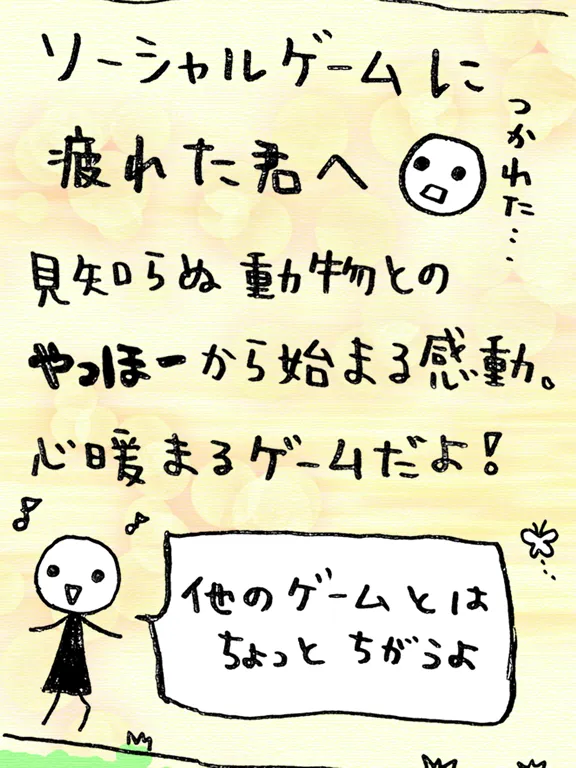 ソーシャルゲームに
疲れた君へ
つかれた…‥
見知らぬ動物との
やっほーから始まる感動。
心暖まるゲームだよ!
他のゲームとは
ちょっとちがうよ